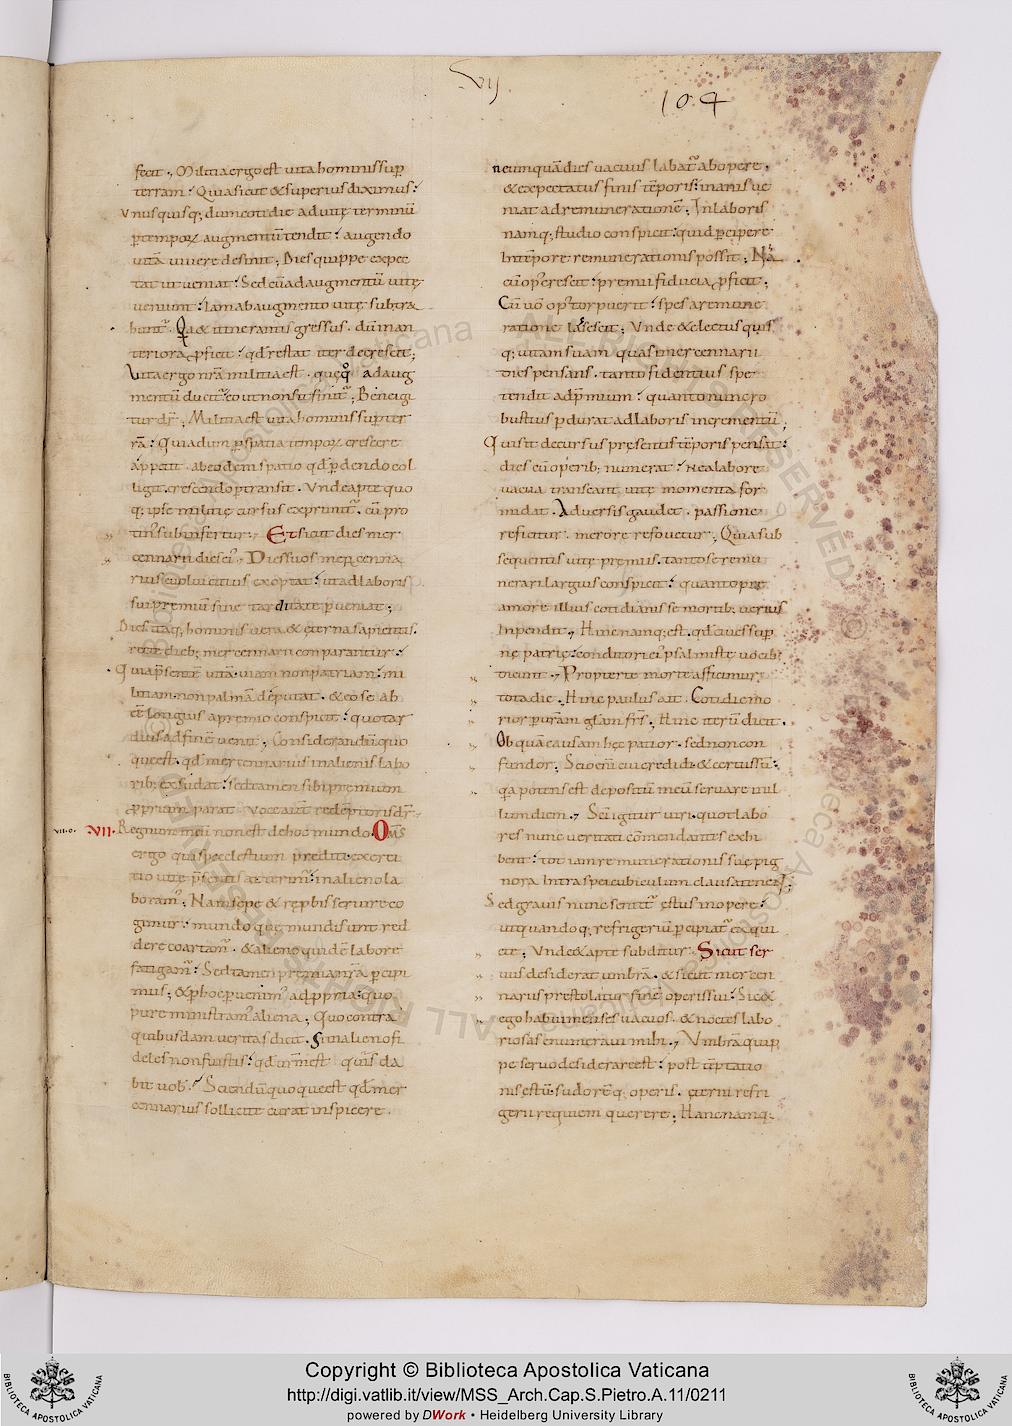 VII
104
fecit., Militia ergo est uita hominis sup
terram. Quia sicut & superius diximus:
Vnusquisq; dum cotidie ad uitę terminũ
p tempoꝝ augmentũ tendit: augendo
uitã uiuere desinit; Dies quippe expec
tat ut ueniat: Sed cũ ad augmentũ uitę
uenerint: iam ab augmento uitę subtra
hunt᷑. Q̃a & itinerantis gressus. dũ in an
teriora pficit: qd̃ restat iter decrescit;
Vita ergo nr̃a militia est. quę quo ad aug
mentũ ducit᷑. eo ut non sit finit᷑; Bene igi
tur dr̃; Militia est uita hominis sup ter
rã: Quia dum p spatia tempoꝝ crescere
appetit. ab eodem spatio qd̃ pdendo col
ligit. crescendo ptransit. Vnde apte quo
q; ipse militię cursus exprimit᷑. cũ pro
tin᷒ subinfertur., Et sicut dies mer
cennarii dies ei᷒., Dies suos mercenna
rius euolui citius exoptat: ut ad laboris
sui premiũ sine tarditate pueniat;
Dies itaq; hominis uera & ęterna sapientis.
recte dieb; mercennarii conparantur:
Quia psentẽ uitã. uiam non patriam: mi
litiam. non palmã deputat. & eo se ab
longius a premio conspicit: quo tar
dius ad finẽ uenit; Considerandũ quo
que est. qd̃ mercennarius in alienis labo
rib; exsudat: sed tamen sibi premium
pprium parat. Voce aut̃ redẽptoris dr̃:
VII. Regnum meũ non est de hoc mundo. Om̃s
ergo qui spe cęlestium prediti. exerci
tio uitę psentis atterim᷒: in alieno la
boram᷒; Nam sępe & reprobis seruire co
gimur: mundo quę mundi sunt red
dere coartam᷑. & alieno quidẽ labore
fatigam᷑: Sed tamen premia nr̃a pcipi
mus; & p hoc puenim᷒ ad ppria: quo
pure ministram᷒ aliena; Quo contra
quibusdam ueritas dicit. Si in alieno fi
deles non fuistis: qd̃ ur̃m est quis da
bit uob᷒. Sciendũ quoque est qd̃ mer
cennarius sollicite curat inspicere.
ne umquã dies uacuus labat᷑ ab opere.
& expectatus finis tẽporis: inanis ue
niat ad remunerationẽ; In laboris
namq; studio conspicit: quid pcipere
In tẽpore remunerationis possit; Nã
cũ op᷒ crescit: premii fiducia pficit;
Cũ uõ op᷒ torpuerit: spes a remune
ratione lassescit; Vnde & electus quis
q; uitam suam quasi mercennarii
dies pensans. tanto fidentius spe
tendit ad premium: quanto numero
bustius pdurat ad laboris incrementũ;
Qui sit decursus presentis tẽporis pensat:
dies cũ operib; numerat: Ne a labore
uacua transeant uitę momenta for
midat. Aduersis gaudet. passione
reficitur. merore refouetur; Quia sub
sequentis uitę premiis. tanto se remu
nerari largius conspicit: quanto pro
amore illius cotidianis se mortib; uerius
Inpendit., Hinc namq; est. qd̃ ciues sup
nę patrię: conditori ei᷒ psalmistę uocib;
dicunt., Propter te morte afficimur
tota die. Hinc paulus ait. Cotidie mo
rior p uram glam fr̃s; Hinc iterũ dicit.
Ob quã causam hęc patior. sed non con
fundor; Scio enĩ cui credidi. & certus sum:
q̃a potens est depositũ meũ seruare in il
lum diem., Scĩ igitur uiri. quot labo
res nunc ueritati com̃endantes exhi
bent: tot iam remunerationis suę pig
nora Intra spei cubiculum clausa tenent;
Sed grauis nunc sentit᷑ ęstus in opere:
ut quandoq; refrigeriũ pcipiat᷑ ex qui
ete; Vnde & apte subditur. Sicut ser
uus desiderat umbrã. & sicut mercen
narius prestolatur finẽ operis sui: Sic &
ego habui menses uacuos. & noctes labo
riosas enumeraui mihi., Vmbrã quip
pe seruo desiderare est: post tẽptatio
nis ęstũ. sudorẽq; operis. ęterni refri
gerii requiem querere; Hanc namq;
Copyright © Biblioteca Apostolica Vaticana
http://digi.vatlib.it/view/MSS_Arch.Cap.S.Pietro.A.11/0211
powered by DWork • Heidelberg University Library
BIBLIOTECA APOSTOLICA VATICANA
BIBLIOTECA APOSTOLICA VATICANA